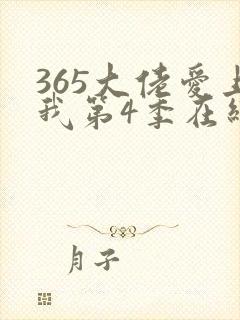 365大佬爱上
我第4季在线
月子